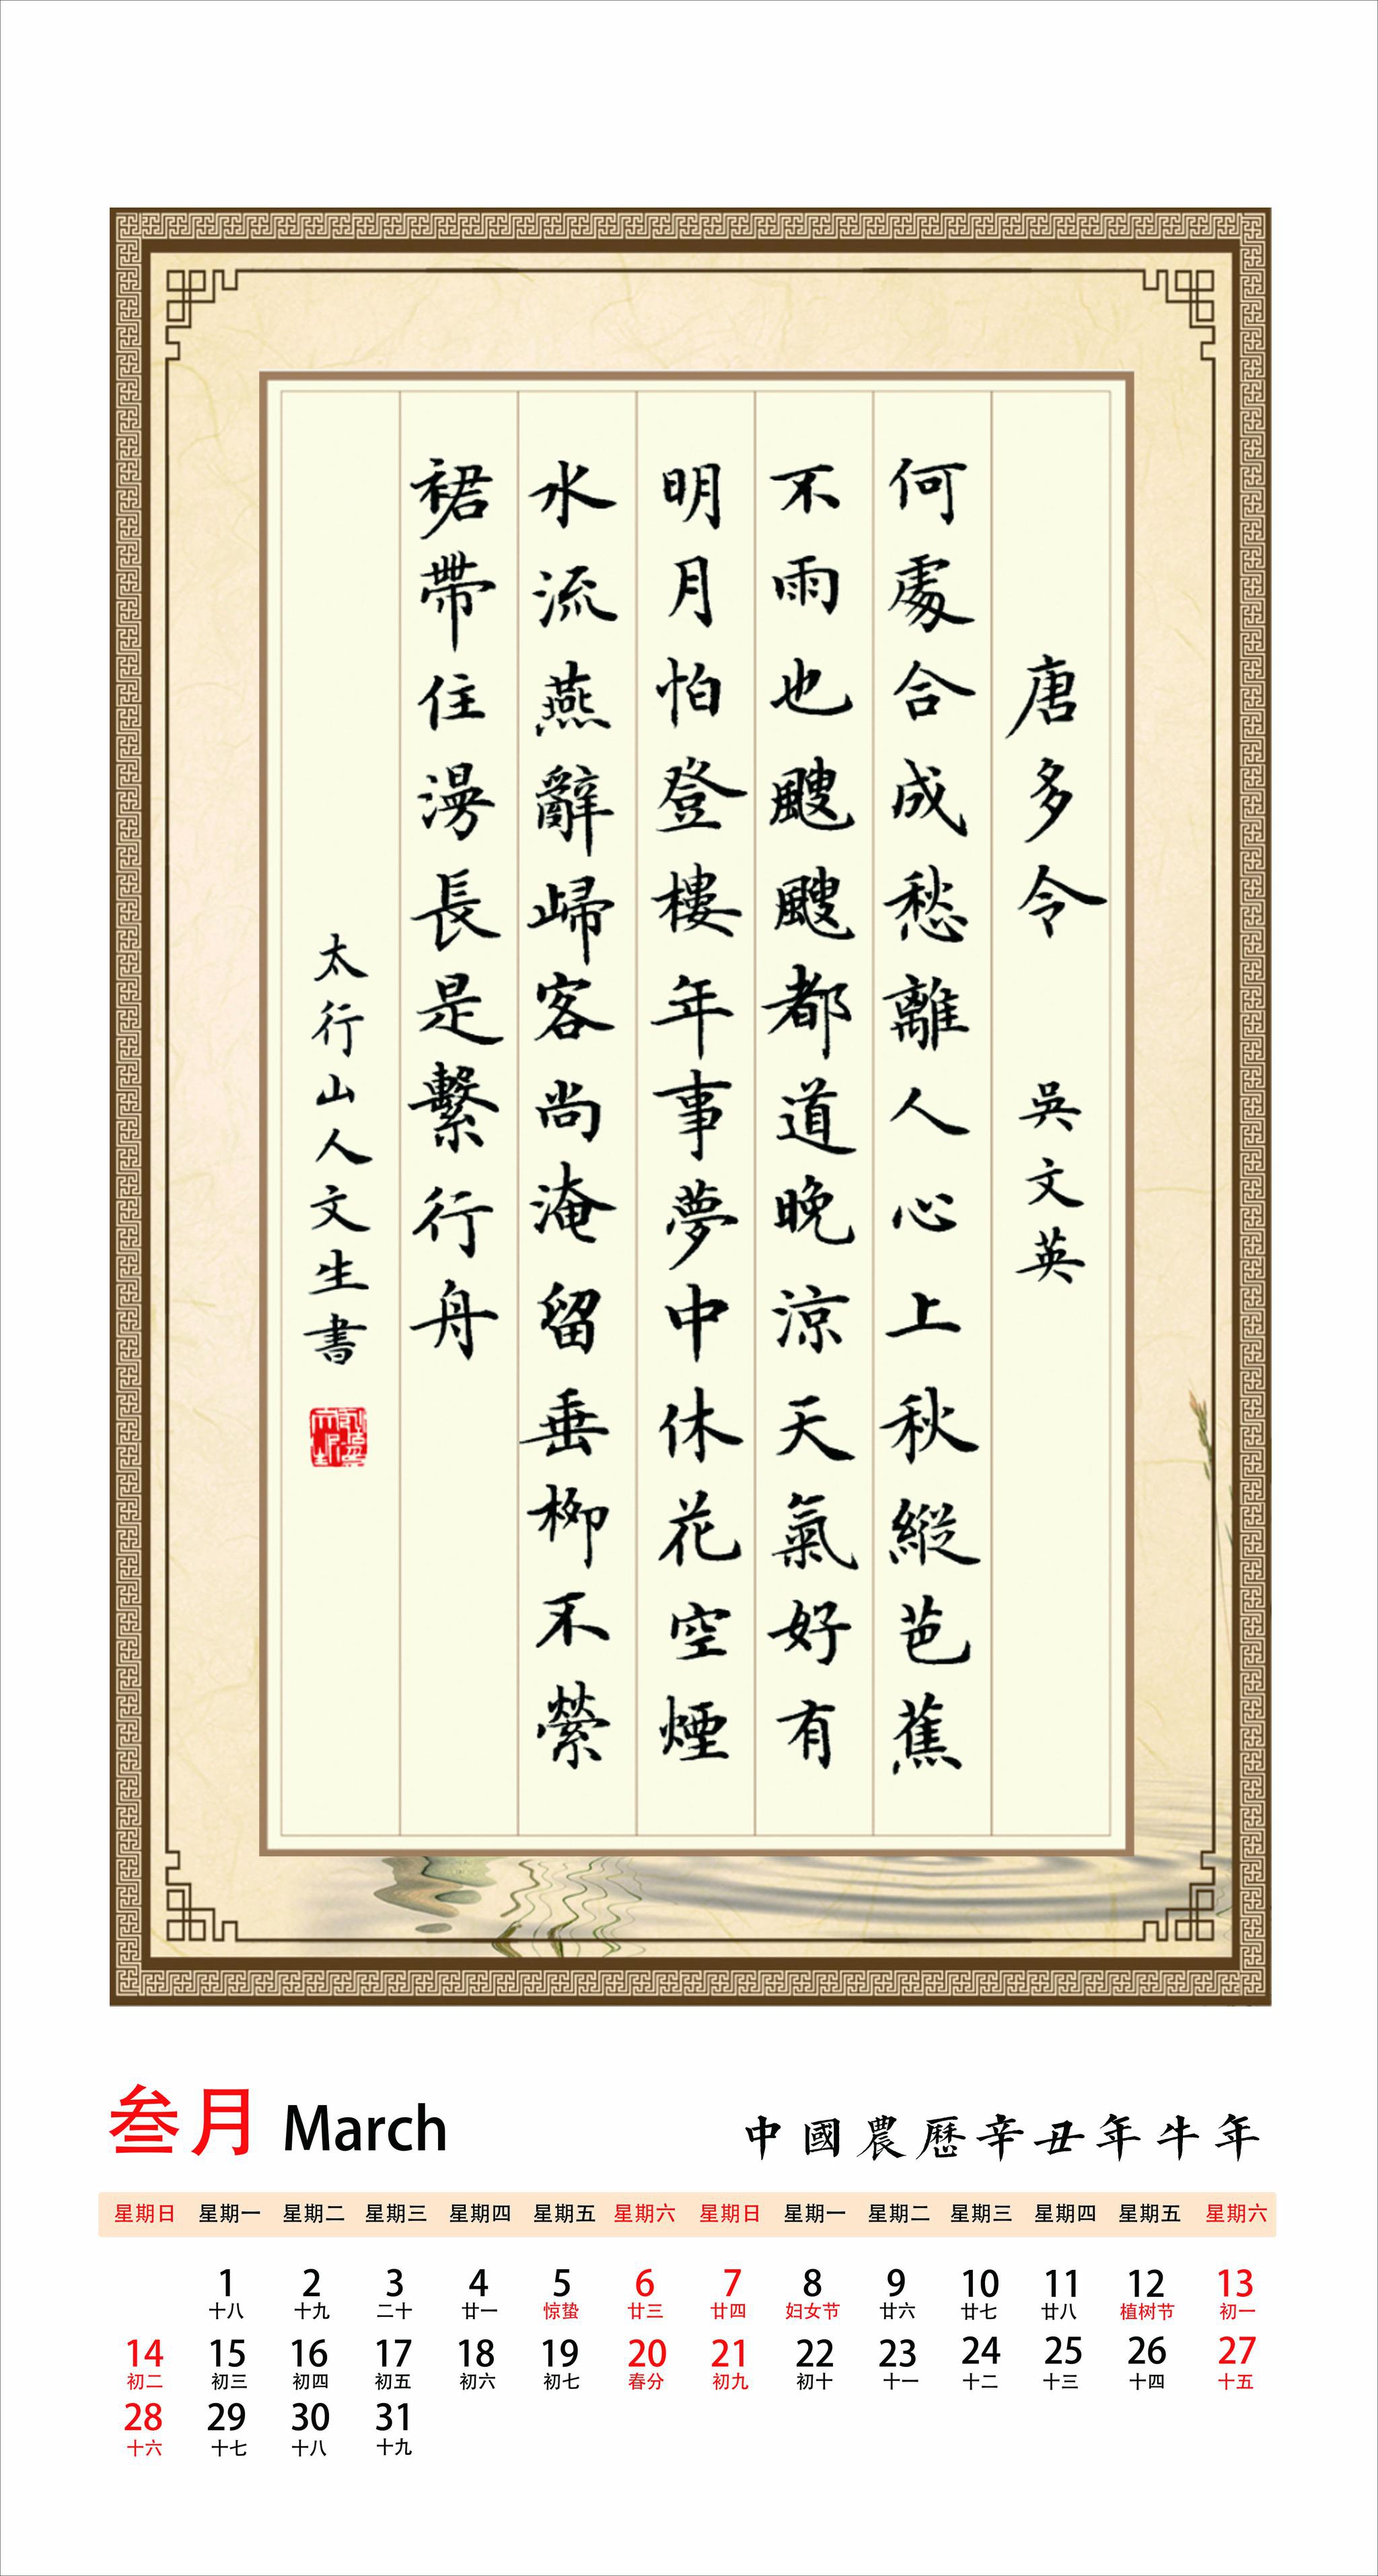 唐多令 吳文英
何處合成愁離人心上秋縱芭蕉
不雨也颼颼都道晚涼天氣好有
明月怕登樓年事夢中休花空煙
水流燕辭歸客尚淹留垂柳不縈
裙帶住漫長是繫行舟
太行山人文生書
叁月 March
中國農歷辛丑年牛年
星期日 星期一 星期二 星期三 星期四 星期五 星期六 星期日 星期一 星期二 星期三 星期四 星期五 星期六
1 2 3 4 5 6 7 8 9 10 11 12 13
十八 十九 二十 廿一 惊蛰 廿三 廿四 妇女节 廿六 廿七 廿八 植树节 初一
14 15 16 17 18 19 20 21 22 23 24 25 26 27
初二 初三 初四 初五 初六 初七 春分 初九 初十 十一 十二 十三 十四 十五
28 29 30 31
十六 十七 十八 十九